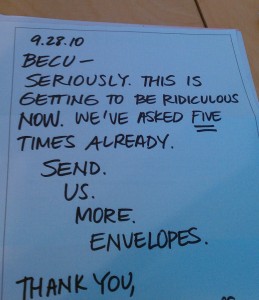 9.28.10
BECU —
SERIOUSLY. THIS IS
GETTING TO BE RIDICULOUS
NOW. WE'VE ASKED FIVE
TIMES ALREADY.
SEND.
US.
MORE.
ENVELOPES.
THANK YOU,